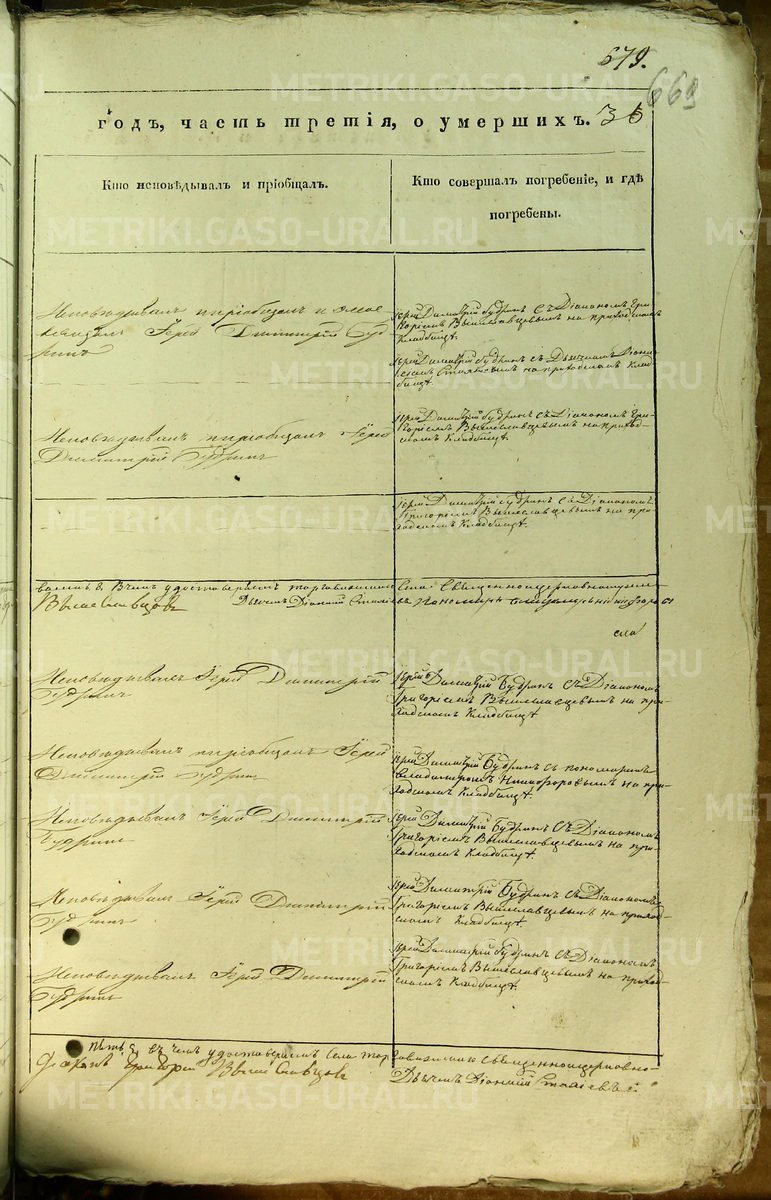 679.
669
годъ, часть третія, о умершихъ. 36
Кто исповѣдывалъ и пріобщалъ.
Кто совершалъ погребеніе, и гдѣ
погребены.
Исповѣдывалъ пріобщалъ и
Іерей Димитрій Будринъ
Іерей Димитрій Будринъ съ Діакономъ Гри-
горіемъ Вышеславцевымъ на приходскомъ
кладбищѣ.
Іерей Димитрій Будринъ съ Дьячкомъ Діони-
сіемъ на приходскомъ клад-
бищѣ.
Исповѣдывалъ и пріобщалъ Іерей
Димитрій Будринъ
Іерей Димитрій Будринъ съ Діакономъ Гри-
горіемъ Вышеславцевымъ на приход-
скомъ кладбищѣ.
Іерей Димитрій Будринъ съ Діакономъ
Григоріемъ Вышеславцевымъ на при-
ходскомъ кладбищѣ.
въ чемъ удостовѣряемъ
села Священноцерковнослужи-
Вышеславцовъ Дьячекъ Діонисій
Пономарь
Исповѣдывалъ Іерей Димитрій
Будринъ
Іерей Димитрій Будринъ съ Діакономъ
Григоріемъ Вышеславцевымъ на при-
ходскомъ кладбищѣ
Исповѣдывалъ и пріобщалъ Іерей
Димитрій Будринъ
Іерей Димитрій Будринъ съ пономаремъ
Владимиромъ Никифоровымъ на при-
ходскомъ кладбищѣ.
Исповѣдывалъ Іерей Димитрій
Будринъ
Іерей Димитрій Будринъ съ Діакономъ
Григоріемъ Вышеславцевымъ на при-
ходскомъ кладбищѣ.
Исповѣдывалъ Іерей Димитрій
Будринъ
Іерей Димитрій Будринъ съ Діакономъ
Григоріемъ Вышеславцевымъ на приход-
скомъ кладбищѣ
Исповѣдывалъ Іерей Димитрій
Будринъ
Іерей Димитрій Будринъ съ Діакономъ
Григоріемъ Вышеславцевымъ на приход-
скомъ кладбищѣ.
пять 5, въ чемъ удостовѣряемъ села
священноцерковно-
Діаконъ Григорій Вышеславцовъ
Дьячекъ Діонисій
METRIKI.GASO-URAL.RU